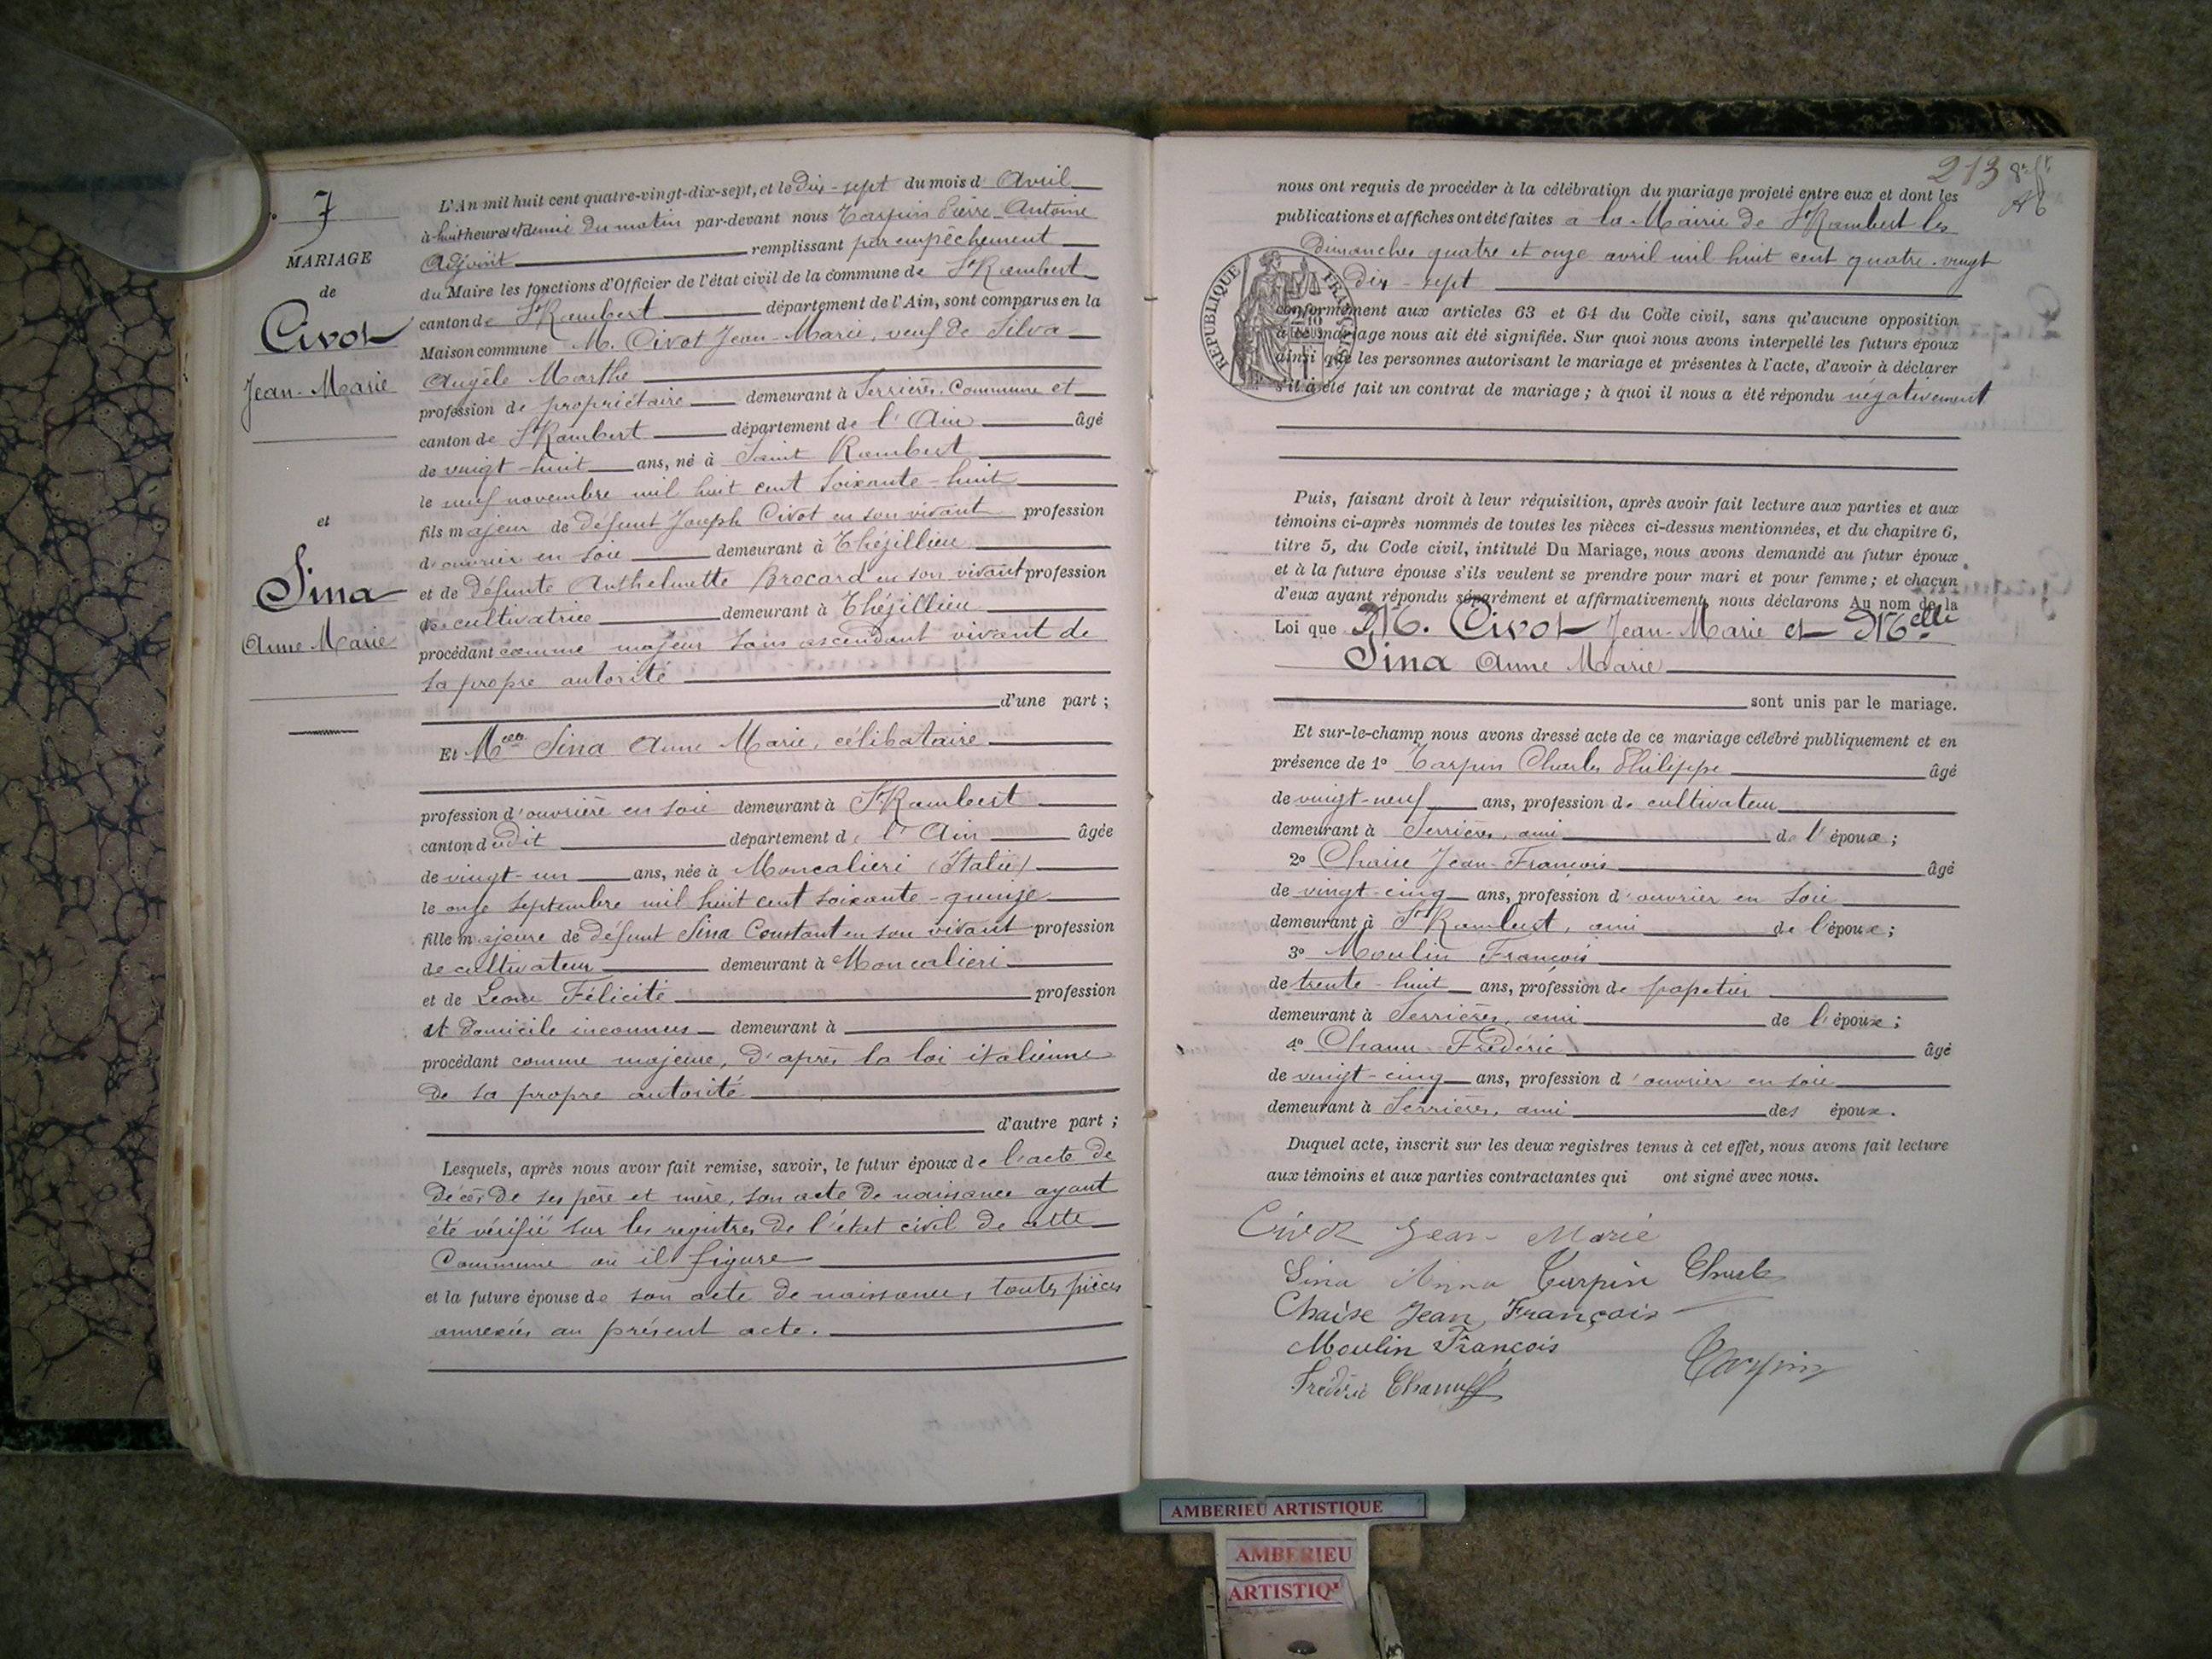 7
MARIAGE
de
Civot
Jean-Marie
et
Sina
Anne Marie
L'An mil huit cent quatre-vingt-dix-sept, et le Dix-sept du mois d'Avril
à huit heures et demie du matin par-devant nous Tarpin Pierre Antoine
Adjoint remplissant par empêchement
du Maire les fonctions d'Officier de l'état civil de la commune de St Rambert
canton de St Rambert département de l'Ain, sont comparus en la
Maison commune M. Civot Jean-Marie, veuf de Silva
Angèle Marthe
profession de propriétaire demeurant à Serrières, Commune et
canton de St Rambert département de l'Ain âgé
de vingt-huit ans, né à Saint Rambert
le neuf novembre mil huit cent soixante-huit
fils majeur de défunt Joseph Civot en son vivant profession
d'ouvrier en soie demeurant à Thézillieu
et de défunte Anthelmette Brocard en son vivant profession
de cultivatrice demeurant à Thézillieu
procédant comme majeur sans ascendant vivant de
sa propre autorité
d'une part ;
Et Melle Sina Anne Marie, célibataire
profession d'ouvrière en soie demeurant à St Rambert
canton dudit département de l'Ain âgée
de vingt-un ans, née à Moncalieri (Italie)
le onze septembre mil huit cent soixante-quinze
fille majeure de défunt Sina Constant en son vivant profession
de cultivateur demeurant à Moncalieri
et de Leone Félicité profession
et domicile inconnus demeurant à
procédant comme majeure, d'après la loi italienne
de sa propre autorité
d'autre part ;
Lesquels, après nous avoir fait remise, savoir, le futur époux de l'acte de
décès de ses père et mère, son acte de naissance ayant
été vérifié sur les registres de l'état civil de cette
Commune où il figure
et la future épouse de son acte de naissance, toutes pièces
annexées au présent acte.
213
nous ont requis de procéder à la célébration du mariage projeté entre eux et dont les
publications et affiches ont été faites à la Mairie de St Rambert les
dimanches quatre et onze avril mil huit cent quatre-vingt
dix-sept
REPUBLIQUE FRANÇAISE
conformément aux articles 63 et 64 du Code civil, sans qu'aucune opposition
à ce mariage nous ait été signifiée. Sur quoi nous avons interpellé les futurs époux
ainsi que les personnes autorisant le mariage et présentes à l'acte, d'avoir à déclarer
s'il a été fait un contrat de mariage ; à quoi il nous a été répondu négativement
Puis, faisant droit à leur réquisition, après avoir fait lecture aux parties et aux
témoins ci-après nommés de toutes les pièces ci-dessus mentionnées, et du chapitre 6,
titre 5, du Code civil, intitulé Du Mariage, nous avons demandé au futur époux
et à la future épouse s'ils veulent se prendre pour mari et pour femme ; et chacun
d'eux ayant répondu séparément et affirmativement, nous déclarons Au nom de la
Loi que M. Civot Jean-Marie et Melle
Sina Anne Marie
sont unis par le mariage.
Et sur-le-champ nous avons dressé acte de ce mariage célébré publiquement et en
présence de 1° Tarpin Charles Philippe âgé
de vingt-neuf ans, profession de cultivateur
demeurant à Serrières, ami de l'époux ;
2° Chaise Jean-François âgé
de vingt-cinq ans, profession d'ouvrier en soie
demeurant à St Rambert, ami de l'époux ;
3° Moulin François
de trente-huit ans, profession de papetier
demeurant à Serrières, ami de l'époux ;
4° Chanu Frédéric âgé
de vingt-cinq ans, profession d'ouvrier en soie
demeurant à Serrières, ami des époux.
Duquel acte, inscrit sur les deux registres tenus à cet effet, nous avons fait lecture
aux témoins et aux parties contractantes qui ont signé avec nous.
Civot Jean-Marie
Sina Anna Tarpin Charles
Chaise Jean François
Moulin François
Tarpin
Frédéric Chanu
AMBERIEU ARTISTIQUE
AMBERIEU
ARTISTIQ